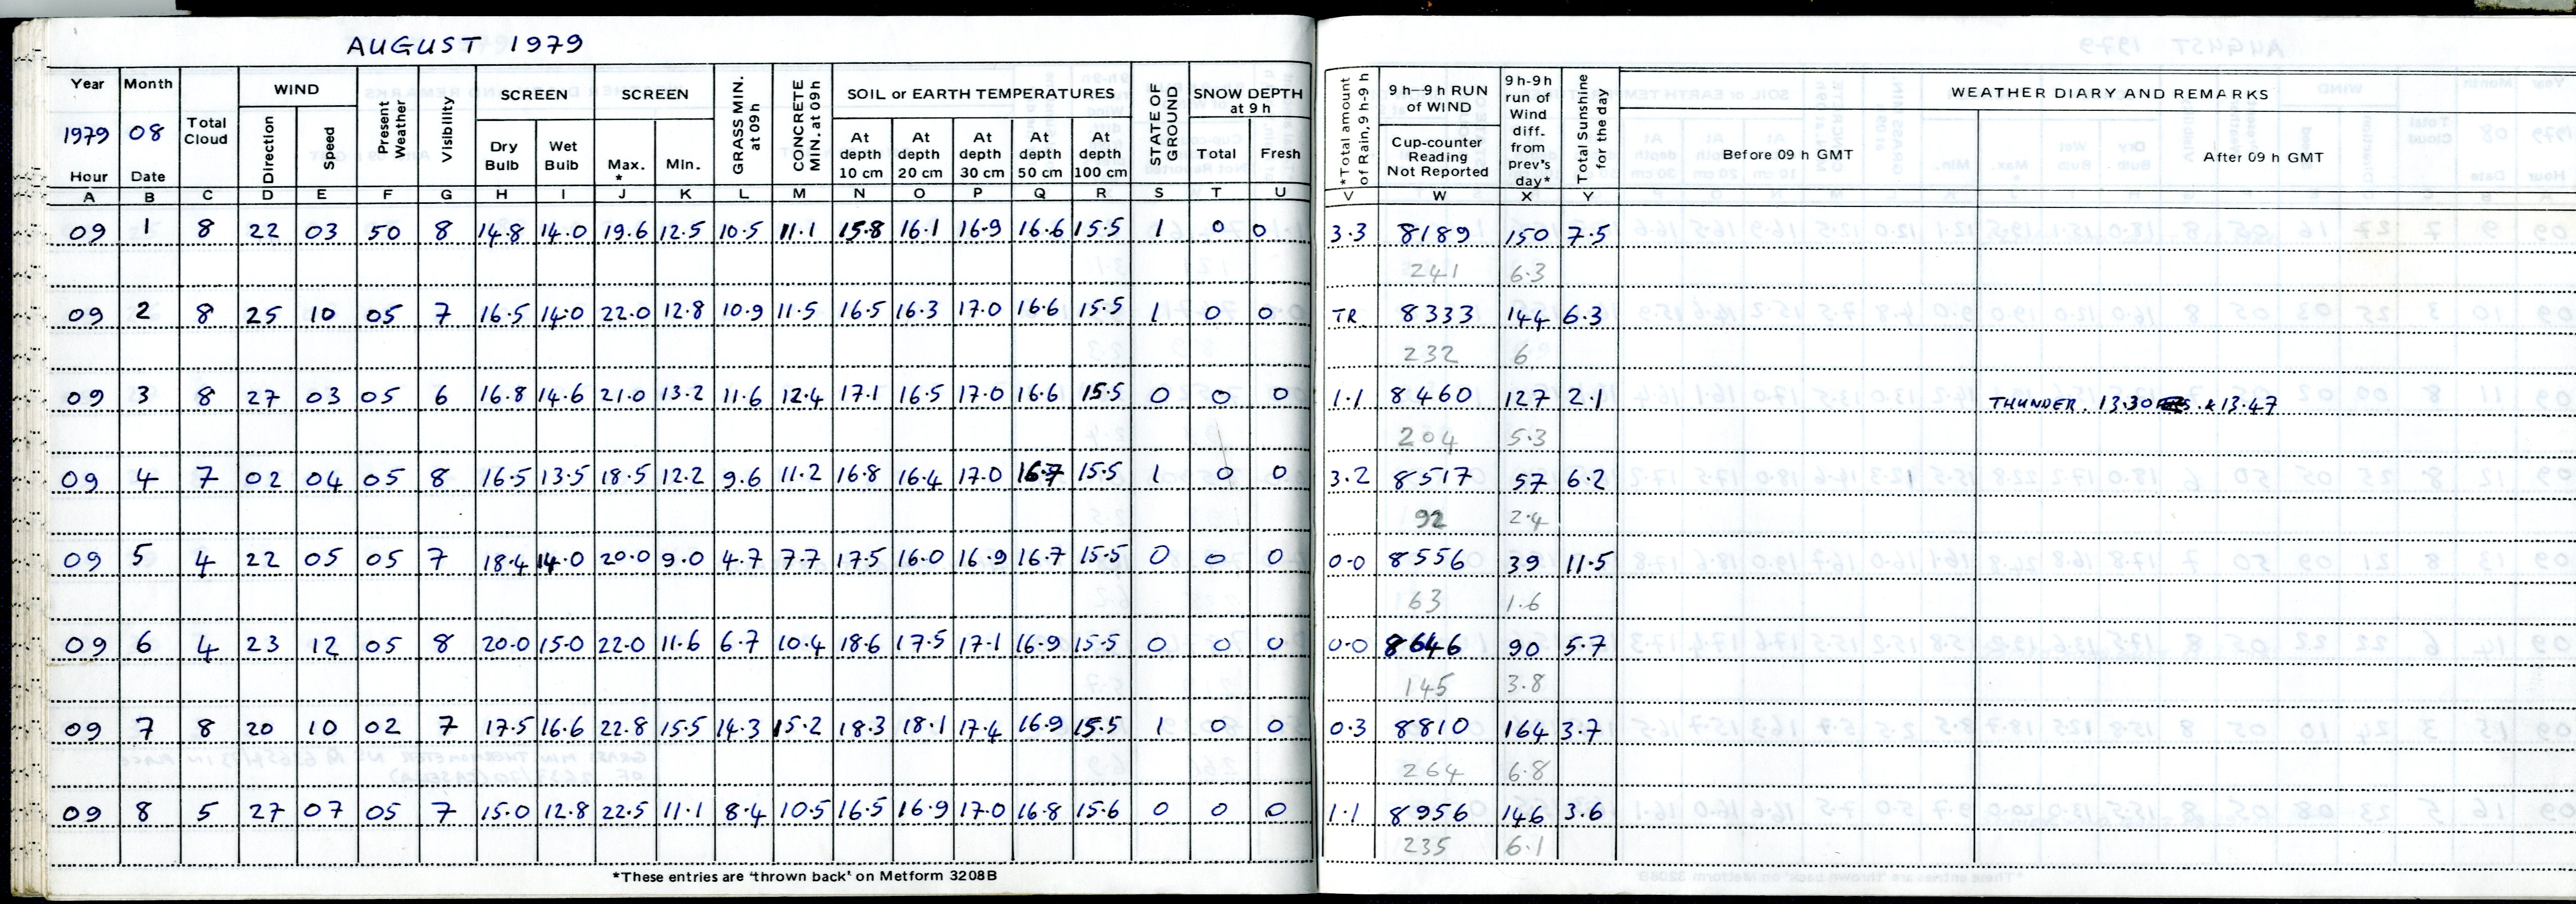 AUGUST 1979
Year Month Total Cloud WIND Present Weather Visibility SCREEN SCREEN GRASS MIN. at 09h CONCRETE MIN. at 09h SOIL or EARTH TEMPERATURES STATE OF GROUND SNOW DEPTH at 9 h *Total amount of Rain, 9 h-9 h 9 h–9 h RUN of WIND 9 h-9h run of Wind diff. from prev's day* Total Sunshine for the day WEATHER DIARY AND REMARKS
1979 08 Direction Speed Dry Bulb Wet Bulb Max. * Min. At depth 10 cm At depth 20 cm At depth 30 cm At depth 50 cm At depth 100 cm Total Fresh Cup-counter Reading Not Reported Before 09 h GMT After 09 h GMT
Hour Date
A B C D E F G H I J K L M N O P Q R S T U V W X Y
09 1 8 22 03 50 8 14.8 14.0 19.6 12.5 10.5 11.1 15.8 16.1 16.9 16.6 15.5 1 0 0 3.3 8189 150 7.5
241 6.3
09 2 8 25 10 05 7 16.5 14.0 22.0 12.8 10.9 11.5 16.5 16.3 17.0 16.6 15.5 1 0 0 TR. 8333 144 6.3
232 6
09 3 8 27 03 05 6 16.8 14.6 21.0 13.2 11.6 12.4 17.1 16.5 17.0 16.6 15.5 0 0 0 1.1 8460 127 2.1 THUNDER. 13.30 & 13.47
204 5.3
09 4 7 02 04 05 8 16.5 13.5 18.5 12.2 9.6 11.2 16.8 16.4 17.0 16.7 15.5 1 0 0 3.2 8517 57 6.2
92 2.4
09 5 4 22 05 05 7 18.4 14.0 20.0 9.0 4.7 7.7 17.5 16.0 16.9 16.7 15.5 0 0 0 0.0 8556 39 11.5
63 1.6
09 6 4 23 12 05 8 20.0 15.0 22.0 11.6 6.7 10.4 18.6 17.5 17.1 16.9 15.5 0 0 0 0.0 8646 90 5.7
145 3.8
09 7 8 20 10 02 7 17.5 16.6 22.8 15.5 14.3 15.2 18.3 18.1 17.4 16.9 15.5 1 0 0 0.3 8810 164 3.7
264 6.8
09 8 5 27 07 05 7 15.0 12.8 22.5 11.1 8.4 10.5 16.5 16.9 17.0 16.8 15.6 0 0 0 1.1 8956 146 3.6
235 6.1
*These entries are 'thrown back' on Metform 3208B